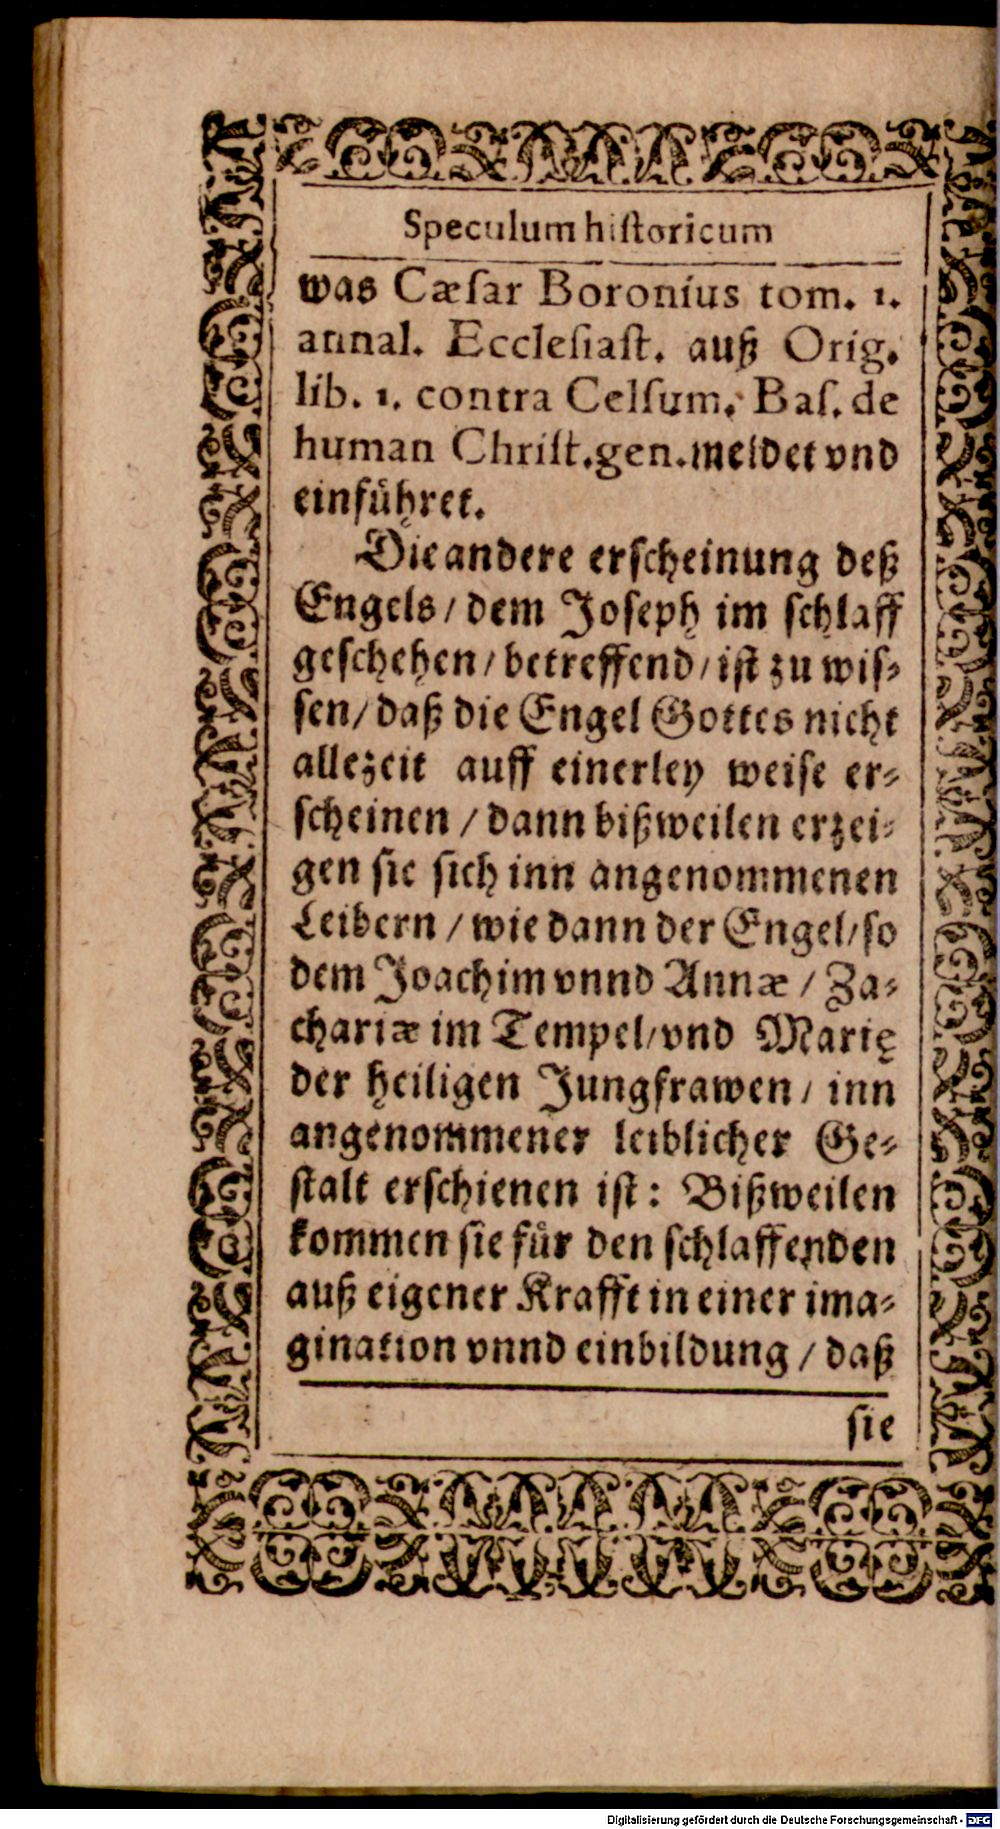 Speculum hiſtoricum
was Cæſar Boronius tom. 1.
annal. Eccleſiaſt. auß Orig.
lib. 1. contra Celſum. Baſ. de
human Chriſt. gen. meldet vnd
einfuͤhret.
Die andere erſcheinung deß
Engels / dem Joſeph im ſchlaff
geſchehen / betreffend / iſt zu wiſ⸗
ſen / daß die Engel Gottes nicht
allezeit auff einerley weiſe er⸗
ſcheinen / dann bißweilen erzei⸗
gen ſie ſich inn angenommenen
Leibern / wie dann der Engel / ſo
dem Joachim vnnd Annæ / Za⸗
chariæ im Tempel / vnd Marię
der heiligen Jungfrawen / inn
angenommener leiblicher Ge⸗
ſtalt erſchienen iſt: Bißweilen
kommen ſie fuͤr den ſchlaffenden
auß eigener Krafft in einer ima⸗
gination vnnd einbildung / daß
ſie
Digitalisierung gefördert durch die Deutsche Forschungsgemeinschaft - DFG